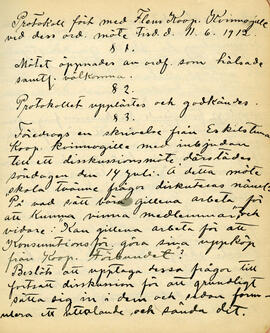 Protokoll fört med Flens Koop. Kvinnogille
vid dess ord. möte Tisd. d. 11.6.1912.
§ 1.
Mötet öppnades av ordf. som hälsade
samtl. välkomna.
§ 2.
Protokollet upplästes och godkändes.
§ 3.
Föredrogs en skrivelse från Eskilstuna
Koop. kvinnogille med inbjudan
till ett diskussionsmöte, därstädes
söndagen den 14 juli. A detta möte
skola tvänne frågor diskuteras näml:
På vad sätt böra gillena arbeta för
att kunna vinna medlemmar, och
vidare: Kan gillena arbeta för att
Konsumtionsför. göra sina uppköp
från Koop. Förbundet?
Beslöts att upptaga dessa frågor till
fortsatt diskussion för att grundligt
sätta sig in i dem och sedan formu-
lera ett uttalande och sända det.